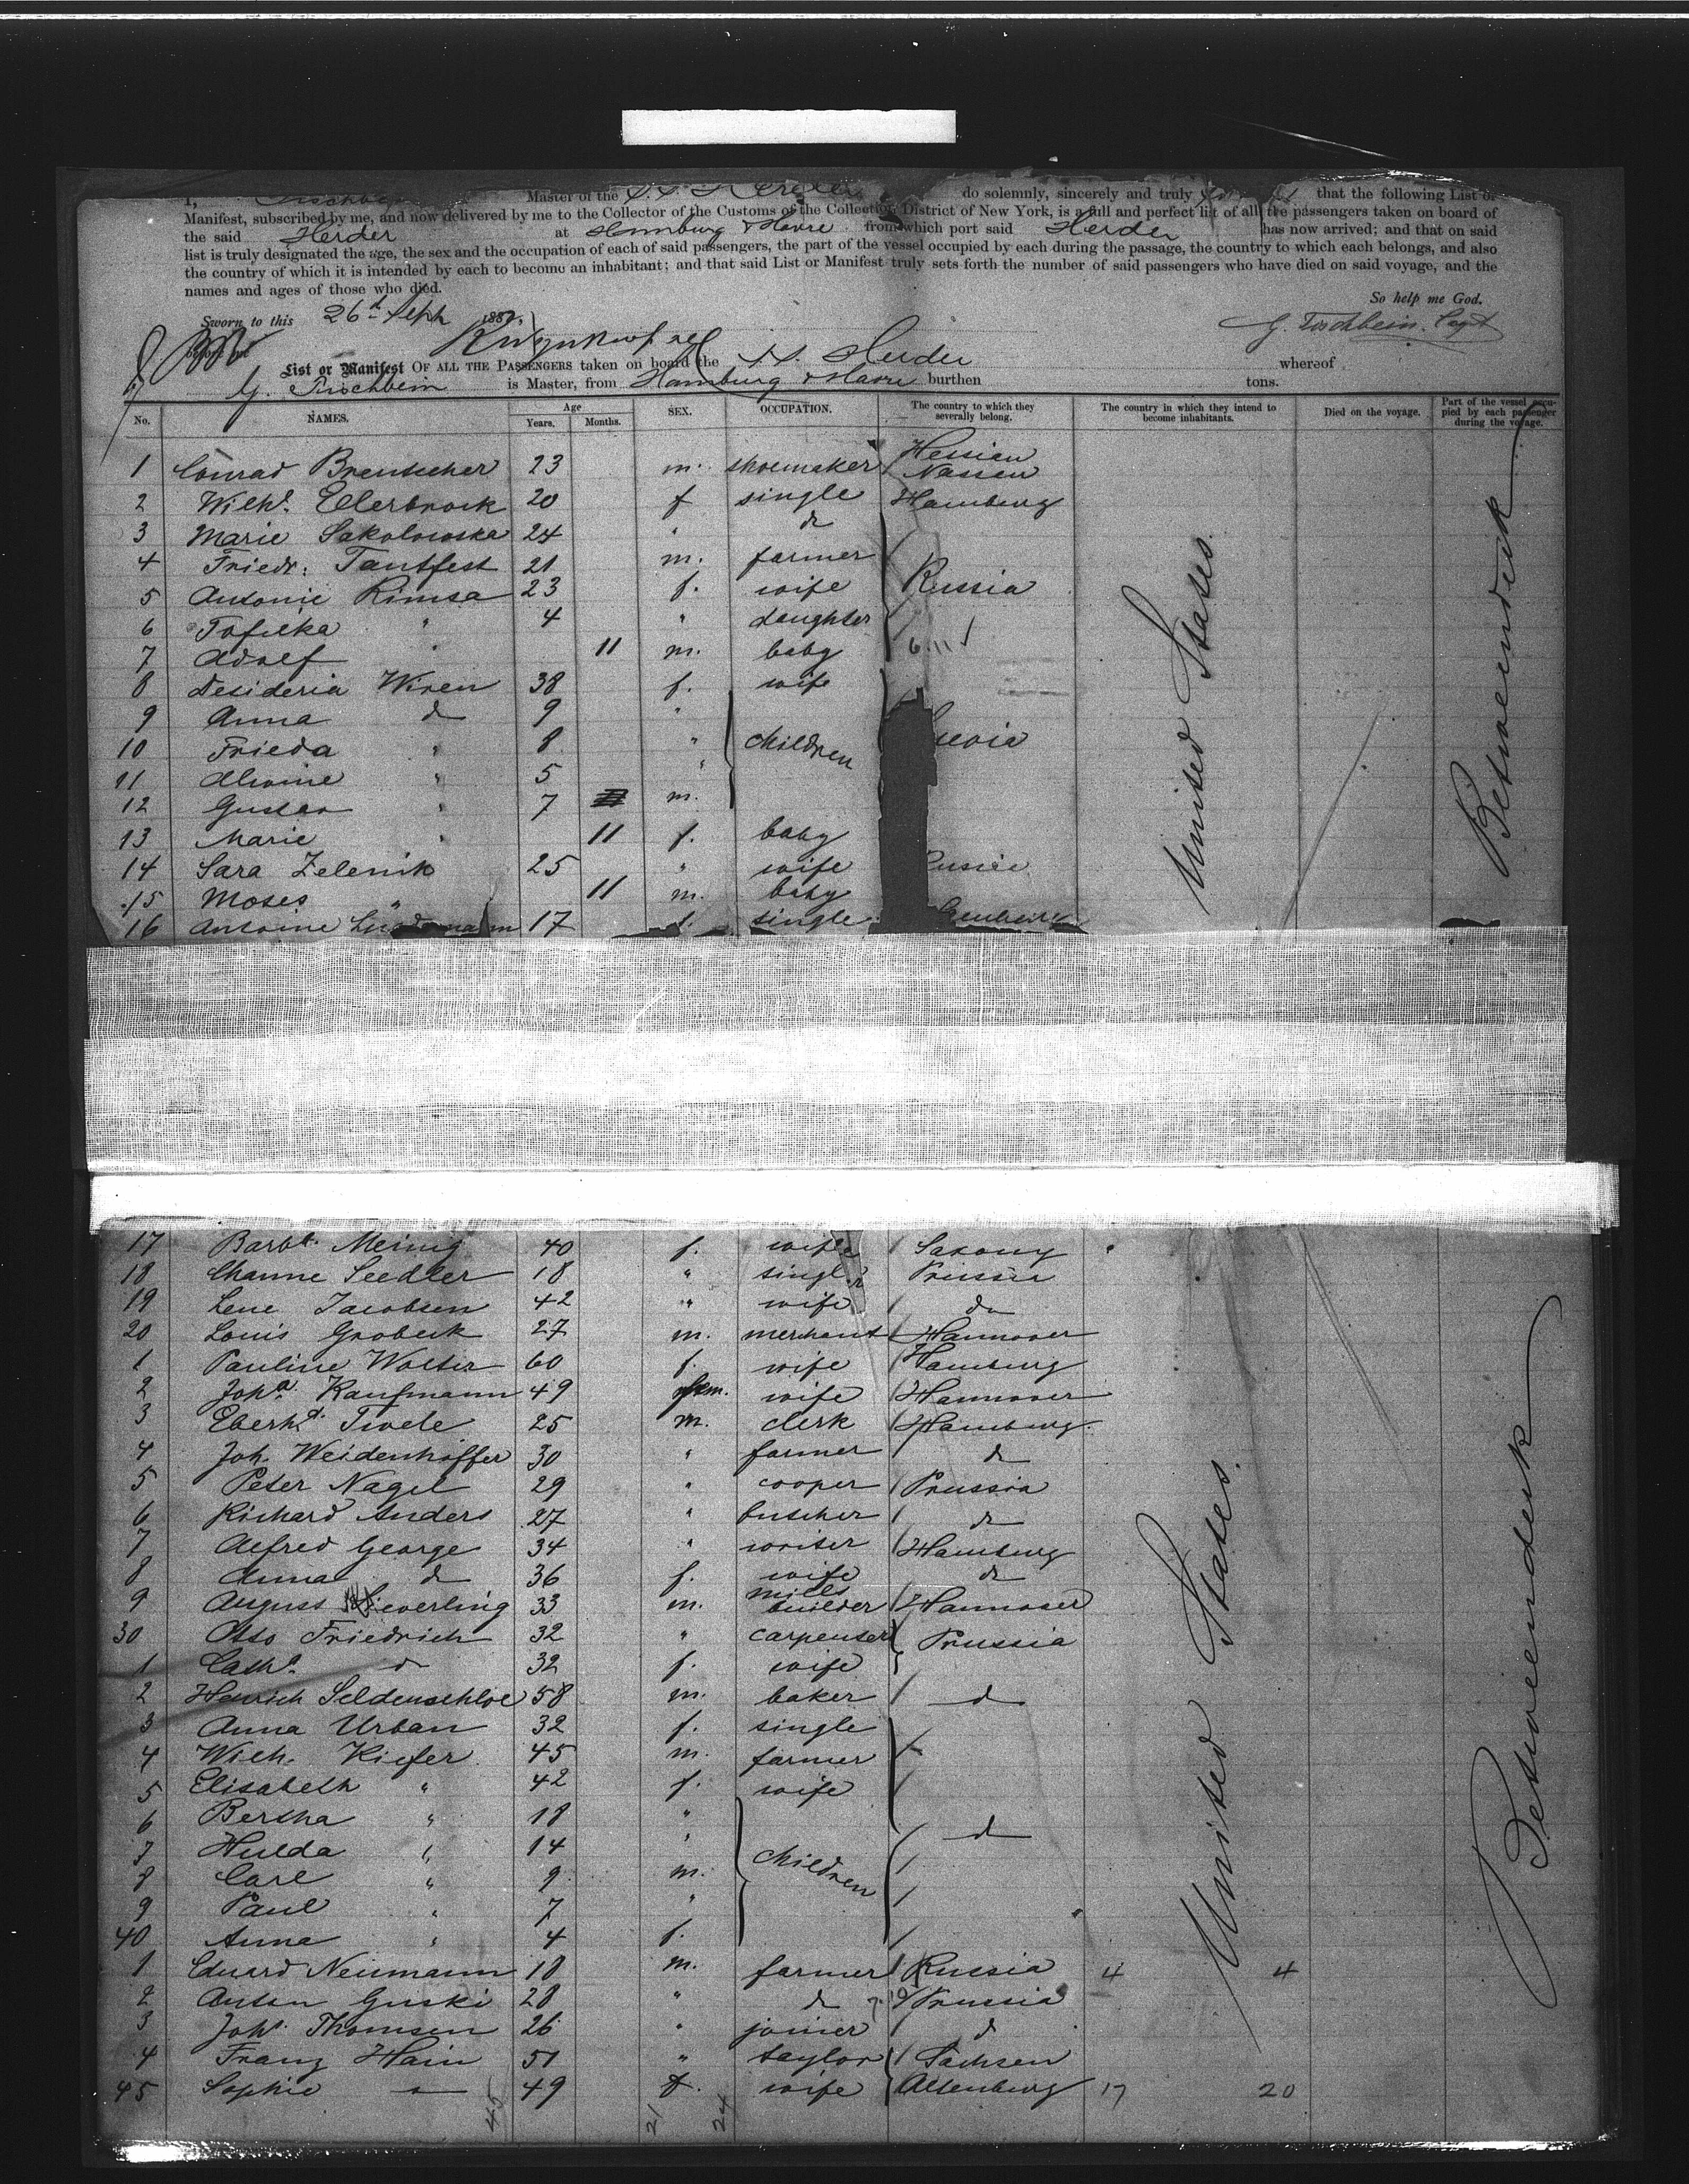 I, Tischbein Master of the S.S. Herder do solemnly, sincerely and truly that the following List or
Manifest, subscribed by me, and now delivered by me to the Collector of the Customs of the Collection District of New York, is a full and perfect list of all the passengers taken on board of
the said Herder at Hamburg & Havre from which port said Herder has now arrived; and that on said
list is truly designated the age, the sex and the occupation of each of said passengers, the part of the vessel occupied by each during the passage, the country to which each belongs, and also
the country of which it is intended by each to become an inhabitant; and that said List or Manifest truly sets forth the number of said passengers who have died on said voyage, and the
names and ages of those who died.
So help me God.
Sworn to this 26th Sept 188
G. Tischbein. Capt
before me
List or Manifest OF ALL THE PASSENGERS taken on board the S.S. Herder whereof
G. Tischbein is Master, from Hamburg & Havre burthen tons.
No. NAMES. Age Years. Months. SEX. OCCUPATION. The country to which they severally belong. The country in which they intend to become inhabitants. Died on the voyage. Part of the vessel occupied by each passenger during the voyage.
1 Conrad Brentscher 23 m. shoemaker Hessian Nassau
2 Wilhe. Ellerbrock 20 f single Hamburg
3 Marie Sakolowska 24 " do
4 Friedr. Tantfest 21 m. farmer
5 Antonie Rimsa 23 f. wife Russia
6 Tofilka " 4 " daughter
7 Adolf " 11 m. baby
8 Desideria Wiren 38 f. wife
9 Anna do 9 "
10 Frieda " 8 " children
11 Alwine " 5 "
12 Gustav " 7 m.
13 Marie " 11 f. baby
14 Sara Zelenik 25 " wife Russia
15 Moses " 11 m. baby
16 Antoine 17 f. single
United States.
Betweendeck
17 Barba. Meinig 40 f. wife Saxony
18 Channe Seedler 18 " single Prussia
19 Lene Jacobsen 42 " wife do
20 Louis Grobeck 27 m. merchant Hannover
1 Pauline Wolter 60 f. wife Hamburg
2 Joha. Kaufmann 49 fem. wife Hannover
3 Eberhd. Twele 25 m. clerk Hamburg.
4 Joh. Weidenhöffer 30 " farmer do
5 Peter Nagel 29 " cooper Prussia
6 Richard Anders 27 " butcher do
7 Alfred George 34 " writer Hamburg
8 Anna do 36 f. wife do
9 August Sieverling 33 m. mills builder Hannover
30 Otto Friedrich 32 " carpenter Prussia
1 Catha. do 32 f. wife
2 Heinrich Seldenschloe 58 m. baker do
3 Anna Urban 32 f. single
4 Wilh. Kiefer 45 m. farmer
5 Elisabeth " 42 f. wife
6 Bertha " 18 "
7 Hulda " 14 " do
8 Carl " 9 m. children
9 Paul " 7 "
40 Anna " 4 f.
1 Eduard Neumann 18 m. farmer Russia 4 4
2 Anton Guski 28 " do Prussia
3 Johs. Thomsen 26 " joiner do
4 Franz Hain 51 " taylor Sachsen
45 Sophie do 49 f. wife Altenburg 17 20
45 21 24
United States.
Betweendeck